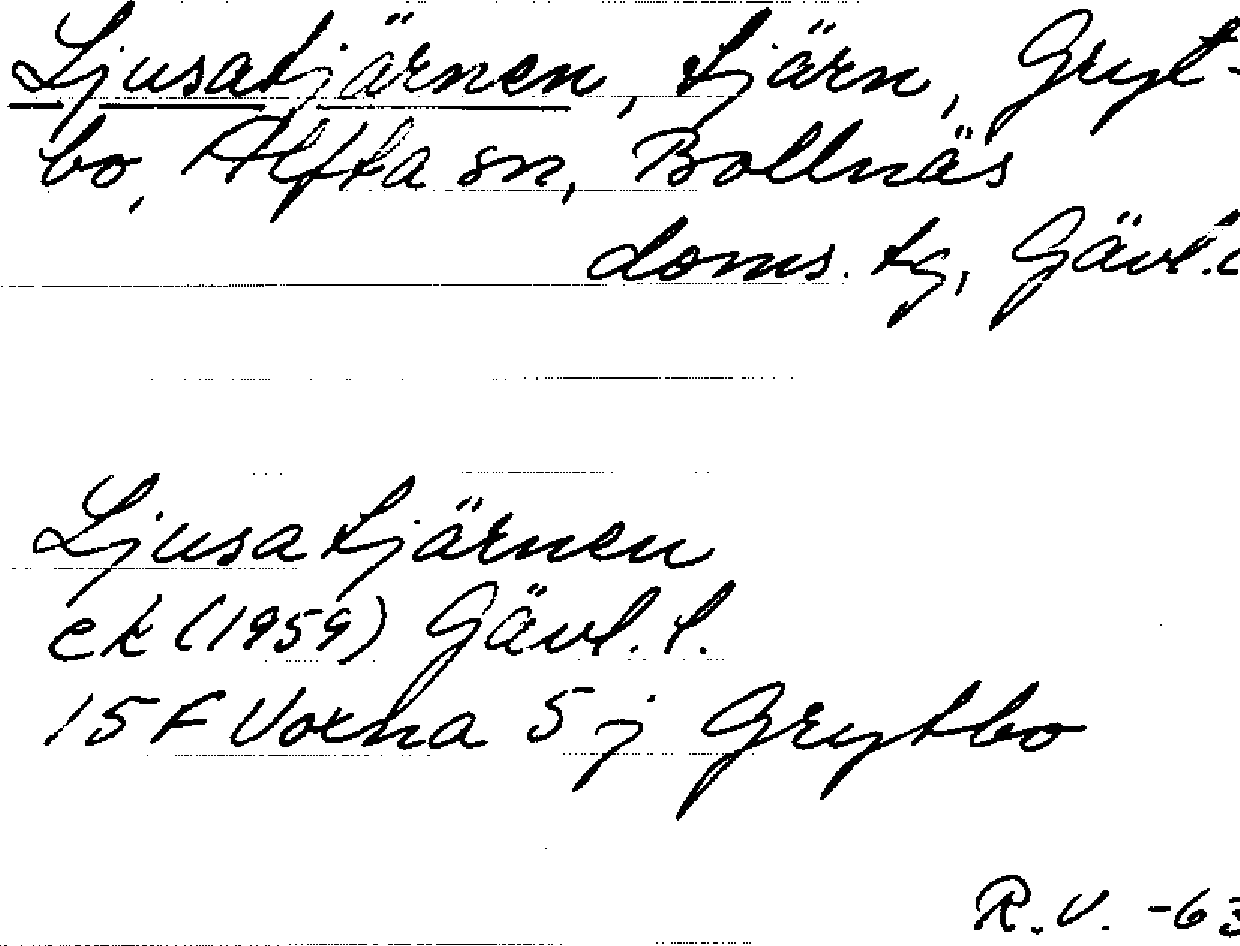 Ljusatjärnen, tjärn, Gryt-
bo, Alfta sn, Bollnäs
doms. tg, Gävl. l
Ljusatjärnen
ek (1959) Gävl. l.
15 F Voxna 5 j Grytbo
R.V. -63